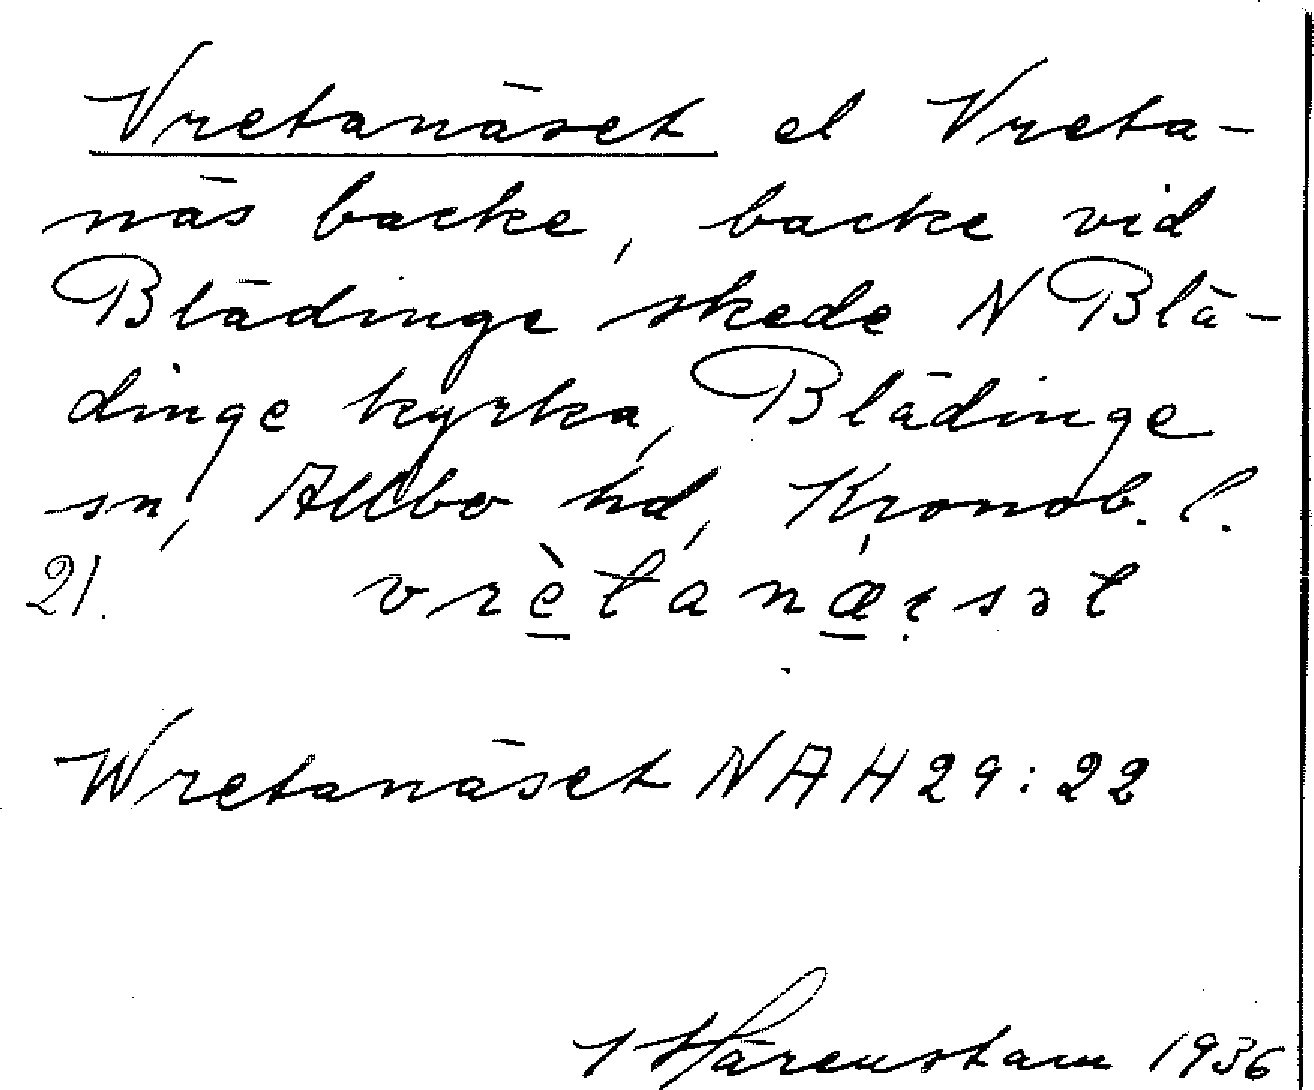 Vretanäset el Vreta-
näs backe, backe vid
Blädinge skede N Blä-
dinge kyrka, Blädinge
sn, Allbo hd, Kronob. l.
21. vrètanæ̀ꞔsət
Wretanäset NAH 29:22
Härenstam 1936